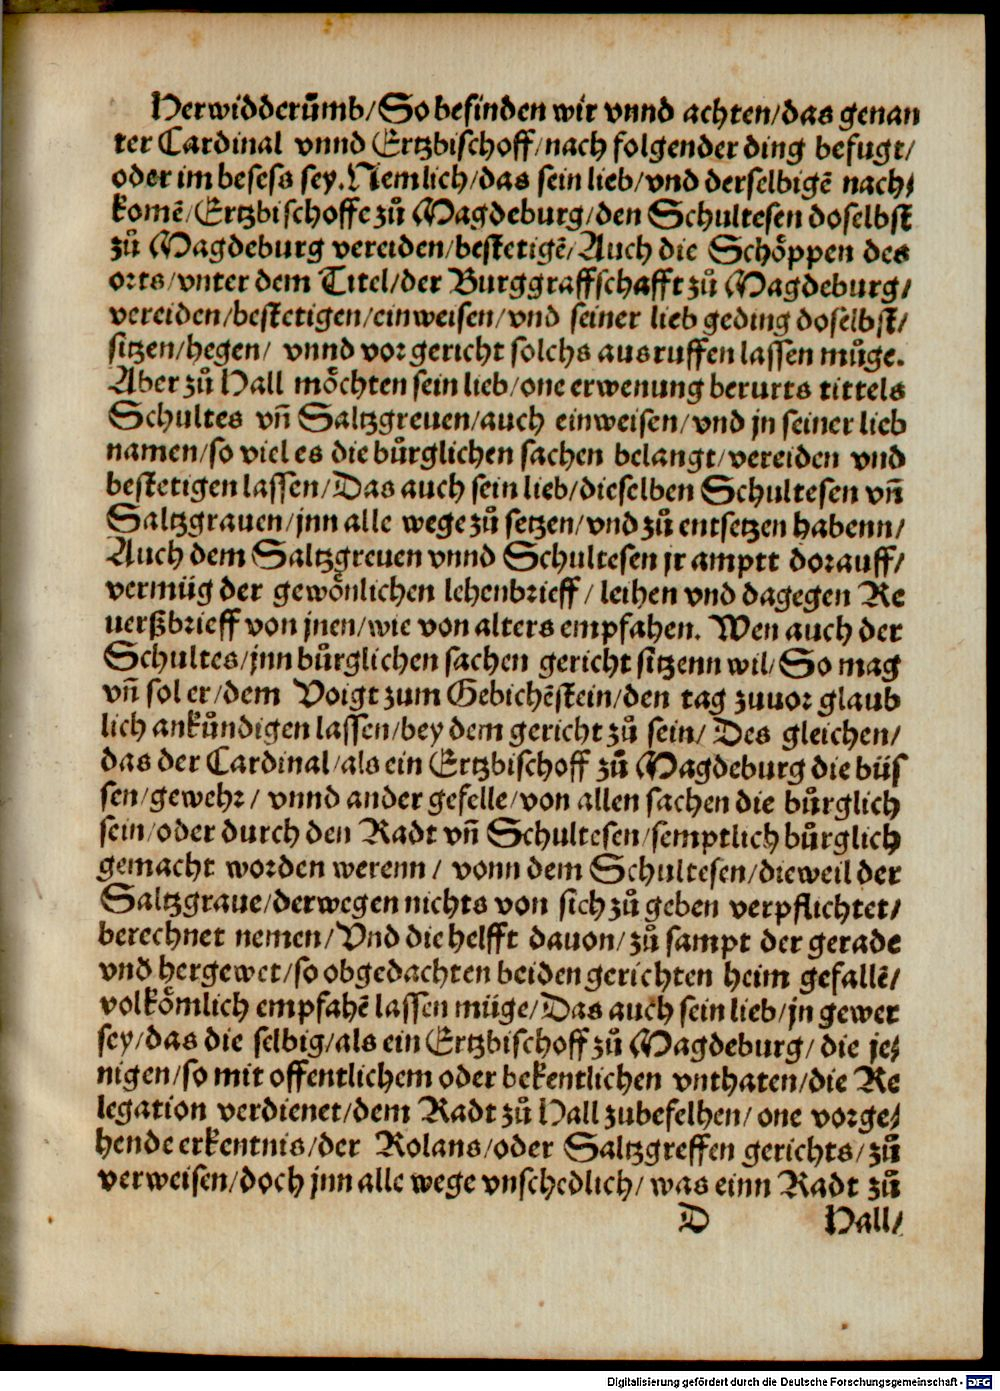 Herwidderuͤmb/So befinden wir vnnd achten/das genan
ter Cardinal vnnd Ertzbischoff/nach folgender ding befugt/
oder im besess sey. Nemlich/das sein lieb/vnd derselbigē nach/
komē/Ertzbischoffe zů Magdeburg/den Schultesen doselbst
zů Magdeburg vereiden/bestetigē/Auch die Schoͤppen des
orts/vnter dem Titel/der Burggraffschafft zů Magdeburg/
vereiden/bestetigen/einweisen/vnd seiner lieb geding doselbst/
sitzen/hegen/ vnnd vor gericht solchs ausruffen lassen muͤge.
Aber zů Hall moͤchten sein lieb/one erwenung berurts tittels
Schultes vn̄ Saltzgreuen/auch einweisen/vnd jn seiner lieb
namen/so viel es die buͤrglichen sachen belangt/vereiden vnd
bestetigen lassen/Das auch sein lieb/dieselben Schultesen vn̄
Saltzgrauen/jnn alle wege zů setzen/vnd zů entsetzen habenn/
Auch dem Saltzgreuen vnnd Schultesen jr amptt dorauff/
vermüg der gewoͤnlichen lehenbrieff/ leihen vnd dagegen Re
uerßbrieff von jnen/wie von alters empfahen. Wen auch der
Schultes/jnn buͤrglichen sachen gericht sitzenn wil/So mag
vn̄ sol er/dem Voigt zum Gebichēstein/den tag zuuor glaub
lich ankuͤndigen lassen/bey dem gericht zů sein/ Des gleichen/
das der Cardinal/als ein Ertzbischoff zů Magdeburg die büs
sen/gewehr/ vnnd ander gefelle/von allen sachen die buͤrglich
sein/oder durch den Radt vn̄ Schultesen/semptlich buͤrglich
gemacht worden werenn/ vonn dem Schultesen/dieweil der
Saltzgraue/derwegen nichts von sich zů geben verpflichtet/
berechnet nemen/Vnd die helfft dauon/zů sampt der gerade
vnd hergewet/so obgedachten beiden gerichten heim gefallē/
volkoͤmlich empfahē lassen müge/Das auch sein lieb/jn gewer
sey/das die selbig/als ein Ertzbischoff zů Magdeburg/ die je/
nigen/so mit offentlichem oder bekentlichen vnthaten/die Re
legation verdienet/dem Radt zů Hall zubefelhen/one vorge/
hende erkentnis/der Rolans/oder Saltzgreffen gerichts/zů
verweisen/doch jnn alle wege vnschedlich/ was einn Radt zů
D Hall/
Digitalisierung gefördert durch die Deutsche Forschungsgemeinschaft - DFG